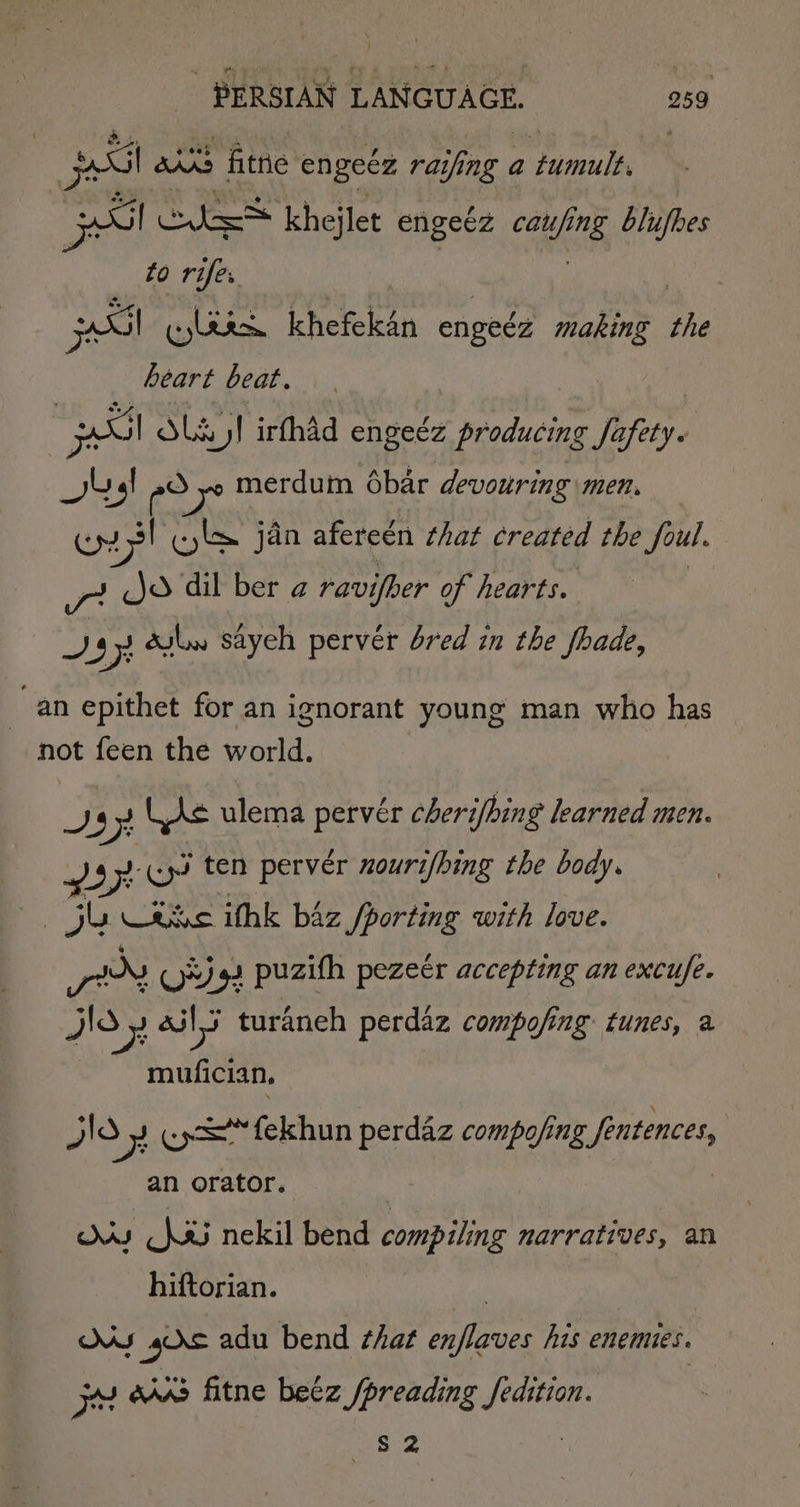 PERSIAN LANGUAGE. 259
فتنه انكیز fitne engeéz raiſing a tumult.
خجلت انكیز khejlet engeéz cauſing bluſhes
to riſe.
خفقان انكیز khefekán engeéz making the
heart beat.
ارشاد انكیز irſhâd engeéz producing ſafety.
مردم اوبار merdum ôbár devouring men.
جان افرین jân afereén that created the ſoul.
دل بر dil ber a raviſher of hearts.
سایه پرور sáyeh pervér bred in the ſhade,
an epithet for an ignorant young man who has
not ſeen the world.
علما پرور ulema pervér cheriſhing learned men.
تن پرور ten pervér nouriſhing the body.
عشق باز iſhk báz ſporting with love.
پوزش پذیر puziſh pezeér accepting an excuſe.
ترانه پرداز turáneh perdáz compoſing tunes, a
muſician,
سخن پرداز ſekhun perdáz compoſing ſentences,
an orator.
نقل بند nekil bend compiling narratives, an
hiſtorian.
عدو بند adu bend that enſlaves his enemies.
فتنه بیز fitne beéz ſpreading ſedition.
S 2